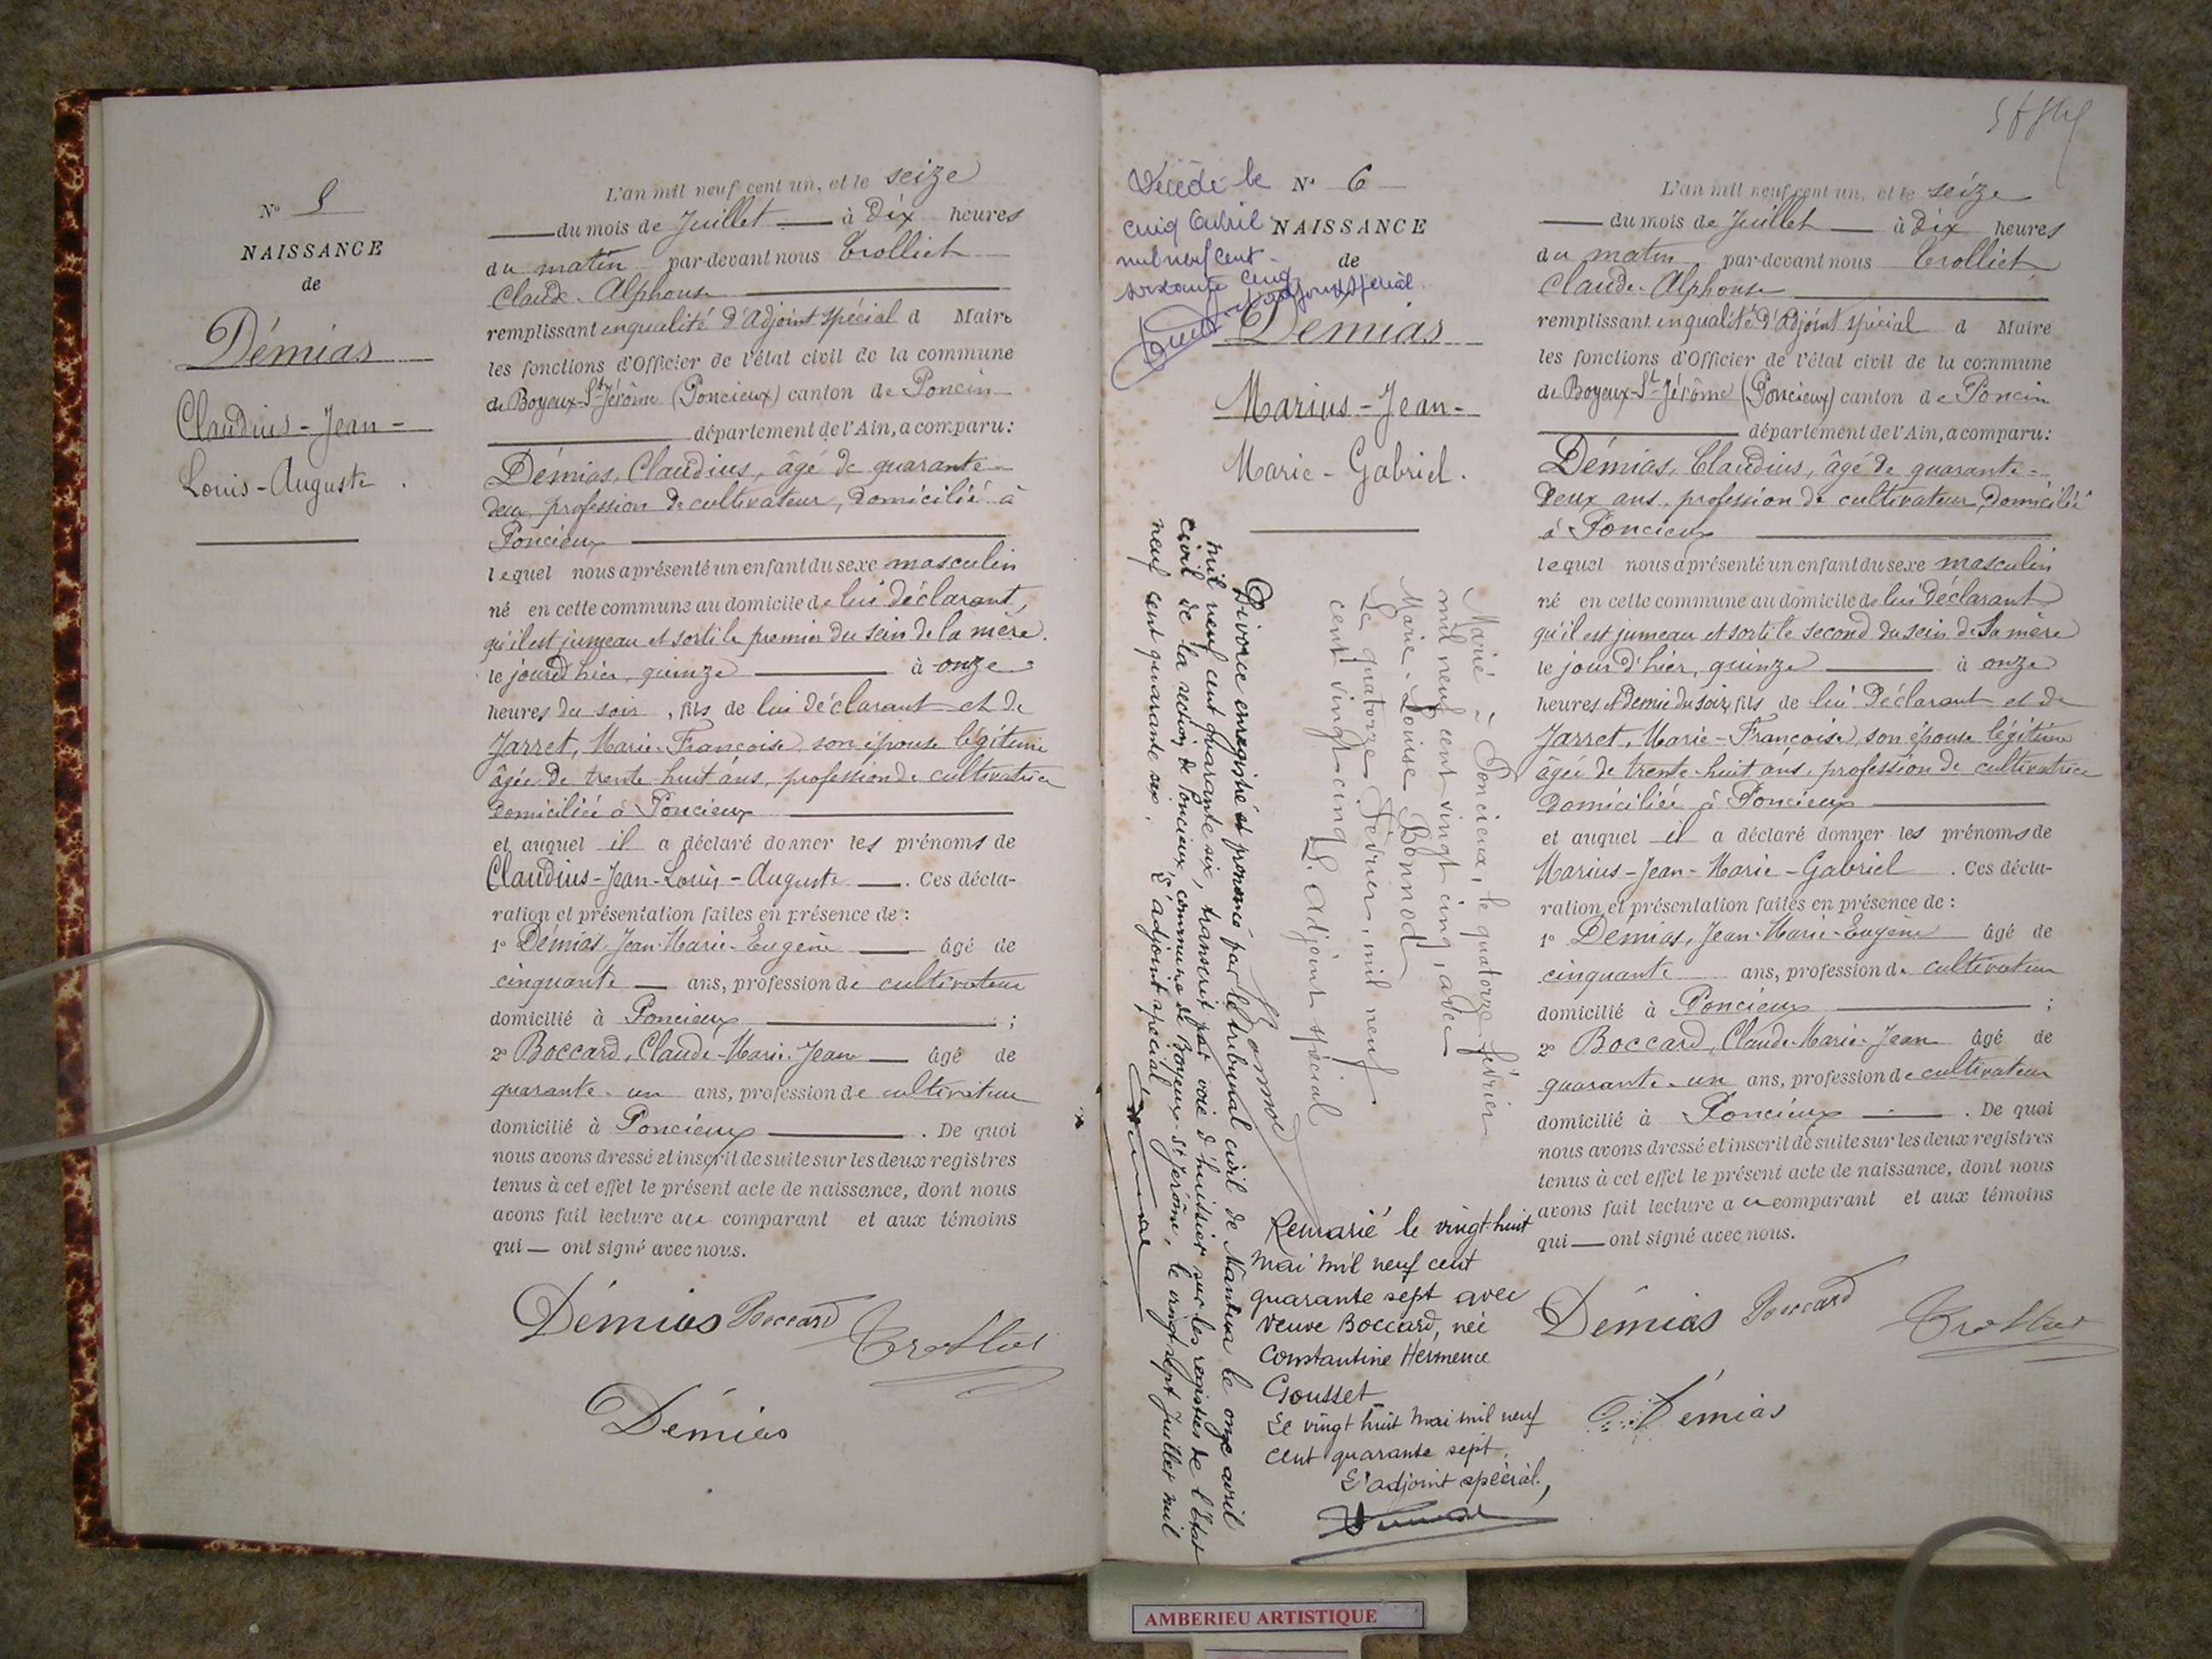 N° 5
NAISSANCE
de
Démias
Claudius-Jean-
Louis-Auguste.
L'an mil neuf cent un, et le seize
du mois de Juillet à Dix heures
du matin par-devant nous Trolliet
Claude-Alphonse
remplissant en qualité d'Adjoint spécial d Maire
les fonctions d'Officier de l'état civil de la commune
de Boyeux-St-Jérôme (Poncieux) canton de Poncin
département de l'Ain, a comparu:
Démias, Claudius, âgé de quarante-
deux, profession de cultivateur, domicilié à
Poncieux
lequel nous a présenté un enfant du sexe masculin
né en cette commune au domicile de lui déclarant,
qu'il est jumeau et sorti le premier du sein de la mère.
le jour d'hier, quinze à onze
heures du soir, fils de lui déclarant et de
Jarret, Marie-Françoise, son épouse légitime
âgée de trente-huit ans, profession de cultivatrice
domiciliée à Poncieux
et auquel il a déclaré donner les prénoms de
Claudius-Jean-Louis-Auguste. Ces décla-
ration et présentation faites en présence de :
1° Démias, Jean-Marie-Eugène âgé de
cinquante ans, profession de cultivateur
domicilié à Poncieux ;
2° Boccard, Claude-Marie-Jean âgé de
quarante-un ans, profession de cultivateur
domicilié à Poncieux. De quoi
nous avons dressé et inscrit de suite sur les deux registres
tenus à cet effet le présent acte de naissance, dont nous
avons fait lecture au comparant et aux témoins
qui ont signé avec nous.
Démias Boccard Trolliet
Démias
Décédé le
cinq Avril
mil neuf cent-
soixante cinq
L'adjoint spécial
N° 6
NAISSANCE
de
Démias
Marius-Jean-
Marie-Gabriel.
Marié à Poncieux, le quatorze février
mil neuf cent vingt cinq, avec
Marie-Louise Bonnod
Le quatorze Février, mil neuf
cent vingt-cinq L'Adjoint spécial
Bonnod
Divorce enregistré et prononcé par le tribunal civil de Nantua le onze avril
mil neuf cent quarante six, transcrit par voie d'huissier sur les registres de l'État
civil de la section de Poncieux, commune de Boyeux-St Jérôme, le vingt sept Juillet mil
neuf cent quarante six. L'adjoint spécial
Remarié le vingt-huit
mai mil neuf cent
quarante sept avec
veuve Boccard, née
Constantine Hermence
Gousset
Le vingt huit mai mil neuf
cent quarante sept.
L'adjoint spécial,
L'an mil neuf cent un, et le seize
du mois de Juillet à Dix heures
du matin par-devant nous Trolliet
Claude-Alphonse
remplissant en qualité d'Adjoint spécial d Maire
les fonctions d'Officier de l'état civil de la commune
de Boyeux-St-Jérôme (Poncieux) canton de Poncin
département de l'Ain, a comparu:
Démias, Claudius, âgé de quarante-
deux ans, profession de cultivateur, domicilié
à Poncieux
lequel nous a présenté un enfant du sexe masculin
né en cette commune au domicile de lui déclarant
qu'il est jumeau et sorti le second du sein de sa mère
le jour d'hier, quinze à onze
heures et demie du soir, fils de lui déclarant et de
Jarret, Marie-Françoise, son épouse légitime
âgée de trente-huit ans, profession de cultivatrice
domiciliée à Poncieux
et auquel il a déclaré donner les prénoms de
Marius-Jean-Marie-Gabriel. Ces décla-
ration et présentation faites en présence de :
1° Démias, Jean-Marie-Eugène âgé de
cinquante ans, profession de cultivateur
domicilié à Poncieux ;
2° Boccard, Claude-Marie-Jean âgé de
quarante-un ans, profession de cultivateur
domicilié à Poncieux. De quoi
nous avons dressé et inscrit de suite sur les deux registres
tenus à cet effet le présent acte de naissance, dont nous
avons fait lecture au comparant et aux témoins
qui ont signé avec nous.
Démias Boccard Trolliet
Démias
AMBERIEU ARTISTIQUE